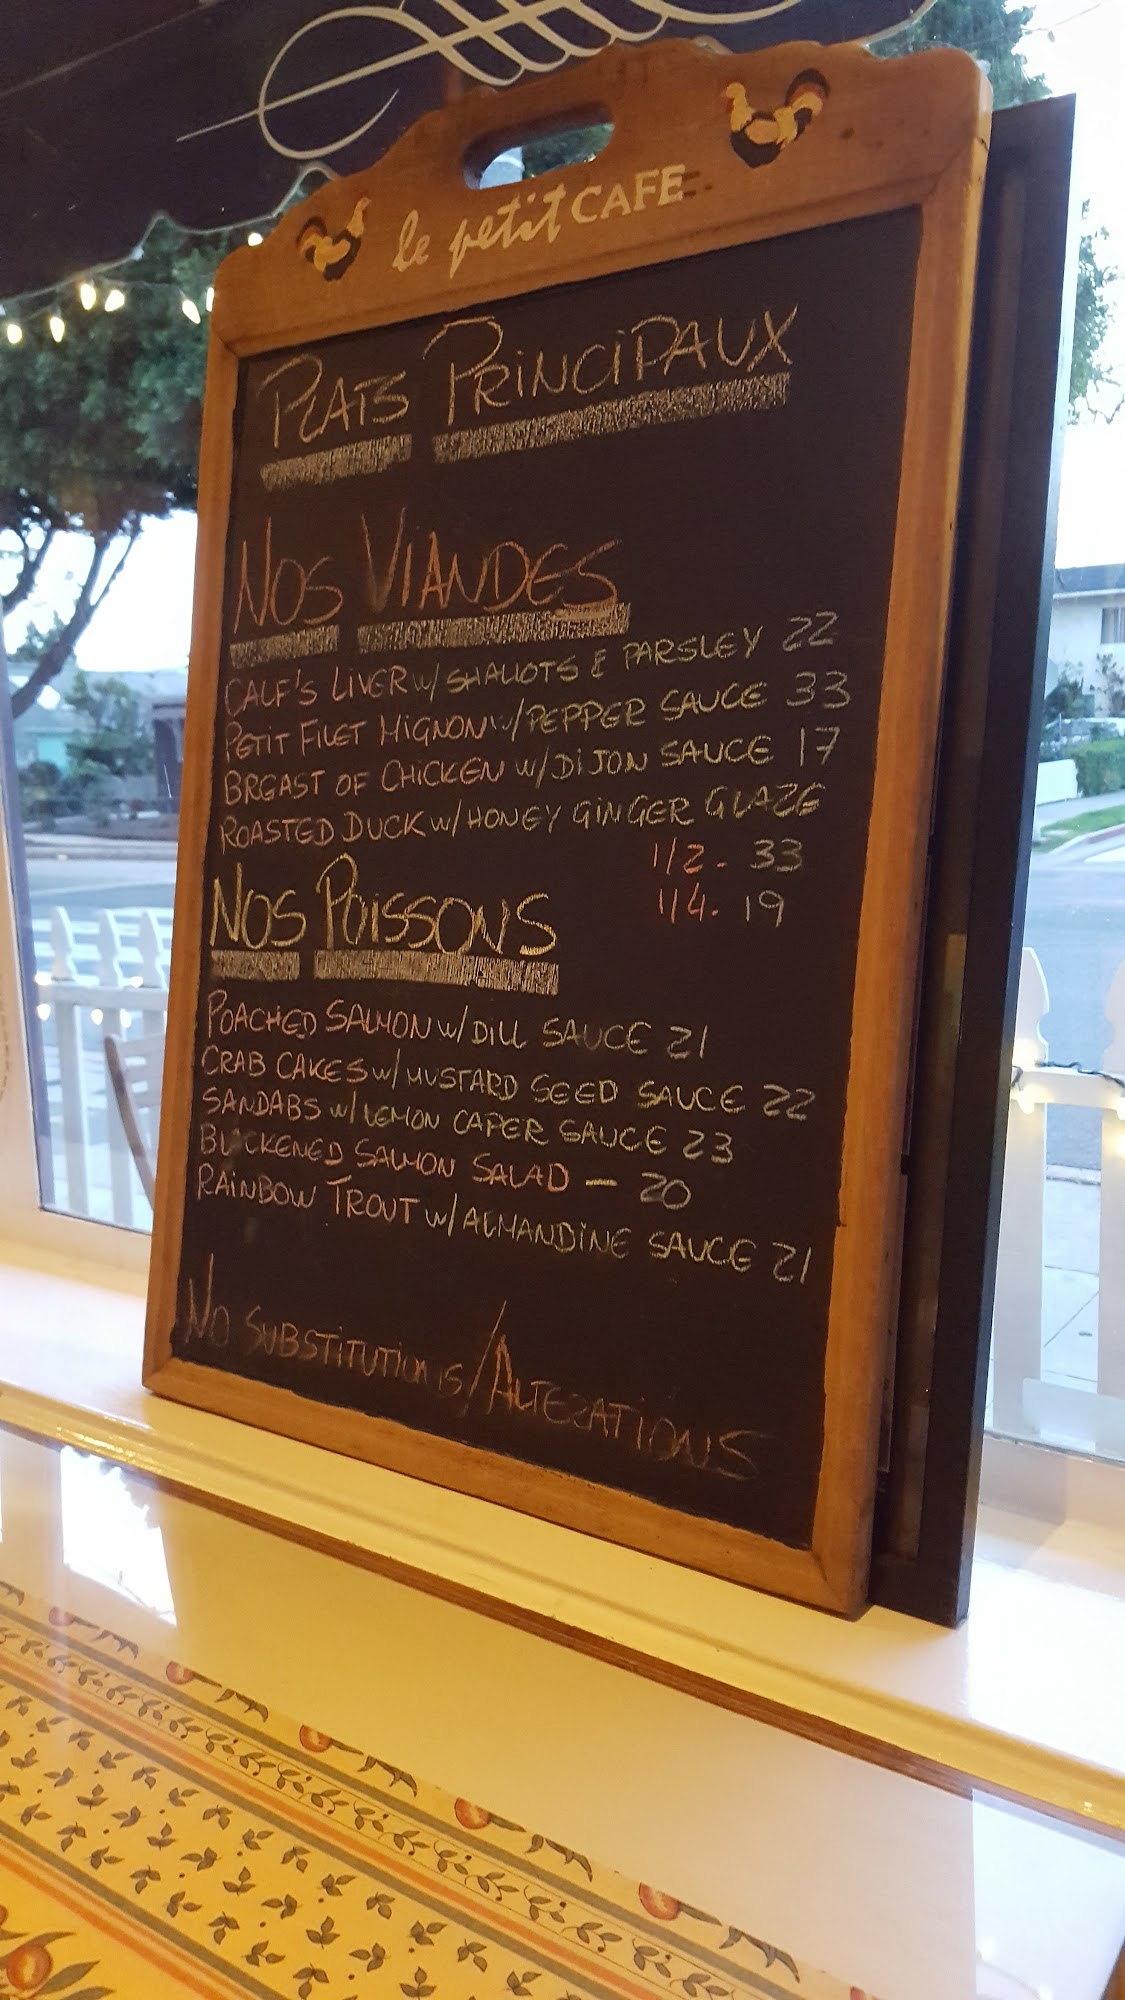 le petit CAFE
PLATS PRINCIPAUX
NOS VIANDES
CALF'S LIVER w/ SHALLOTS & PARSLEY 22
PETIT FILET MIGNON w/ PEPPER SAUCE 33
BREAST OF CHICKEN w/ DIJON SAUCE 17
ROASTED DUCK w/ HONEY GINGER GLAZE
1/2. 33
1/4. 19
NOS POISSONS
POACHED SALMON w/ DILL SAUCE 21
CRAB CAKES w/ MUSTARD SEED SAUCE 22
SANDABS w/ LEMON CAPER SAUCE 23
BLACKENED SALMON SALAD — 20
RAINBOW TROUT w/ ALMANDINE SAUCE 21
NO SUBSTITUTIONS/ALTERATIONS